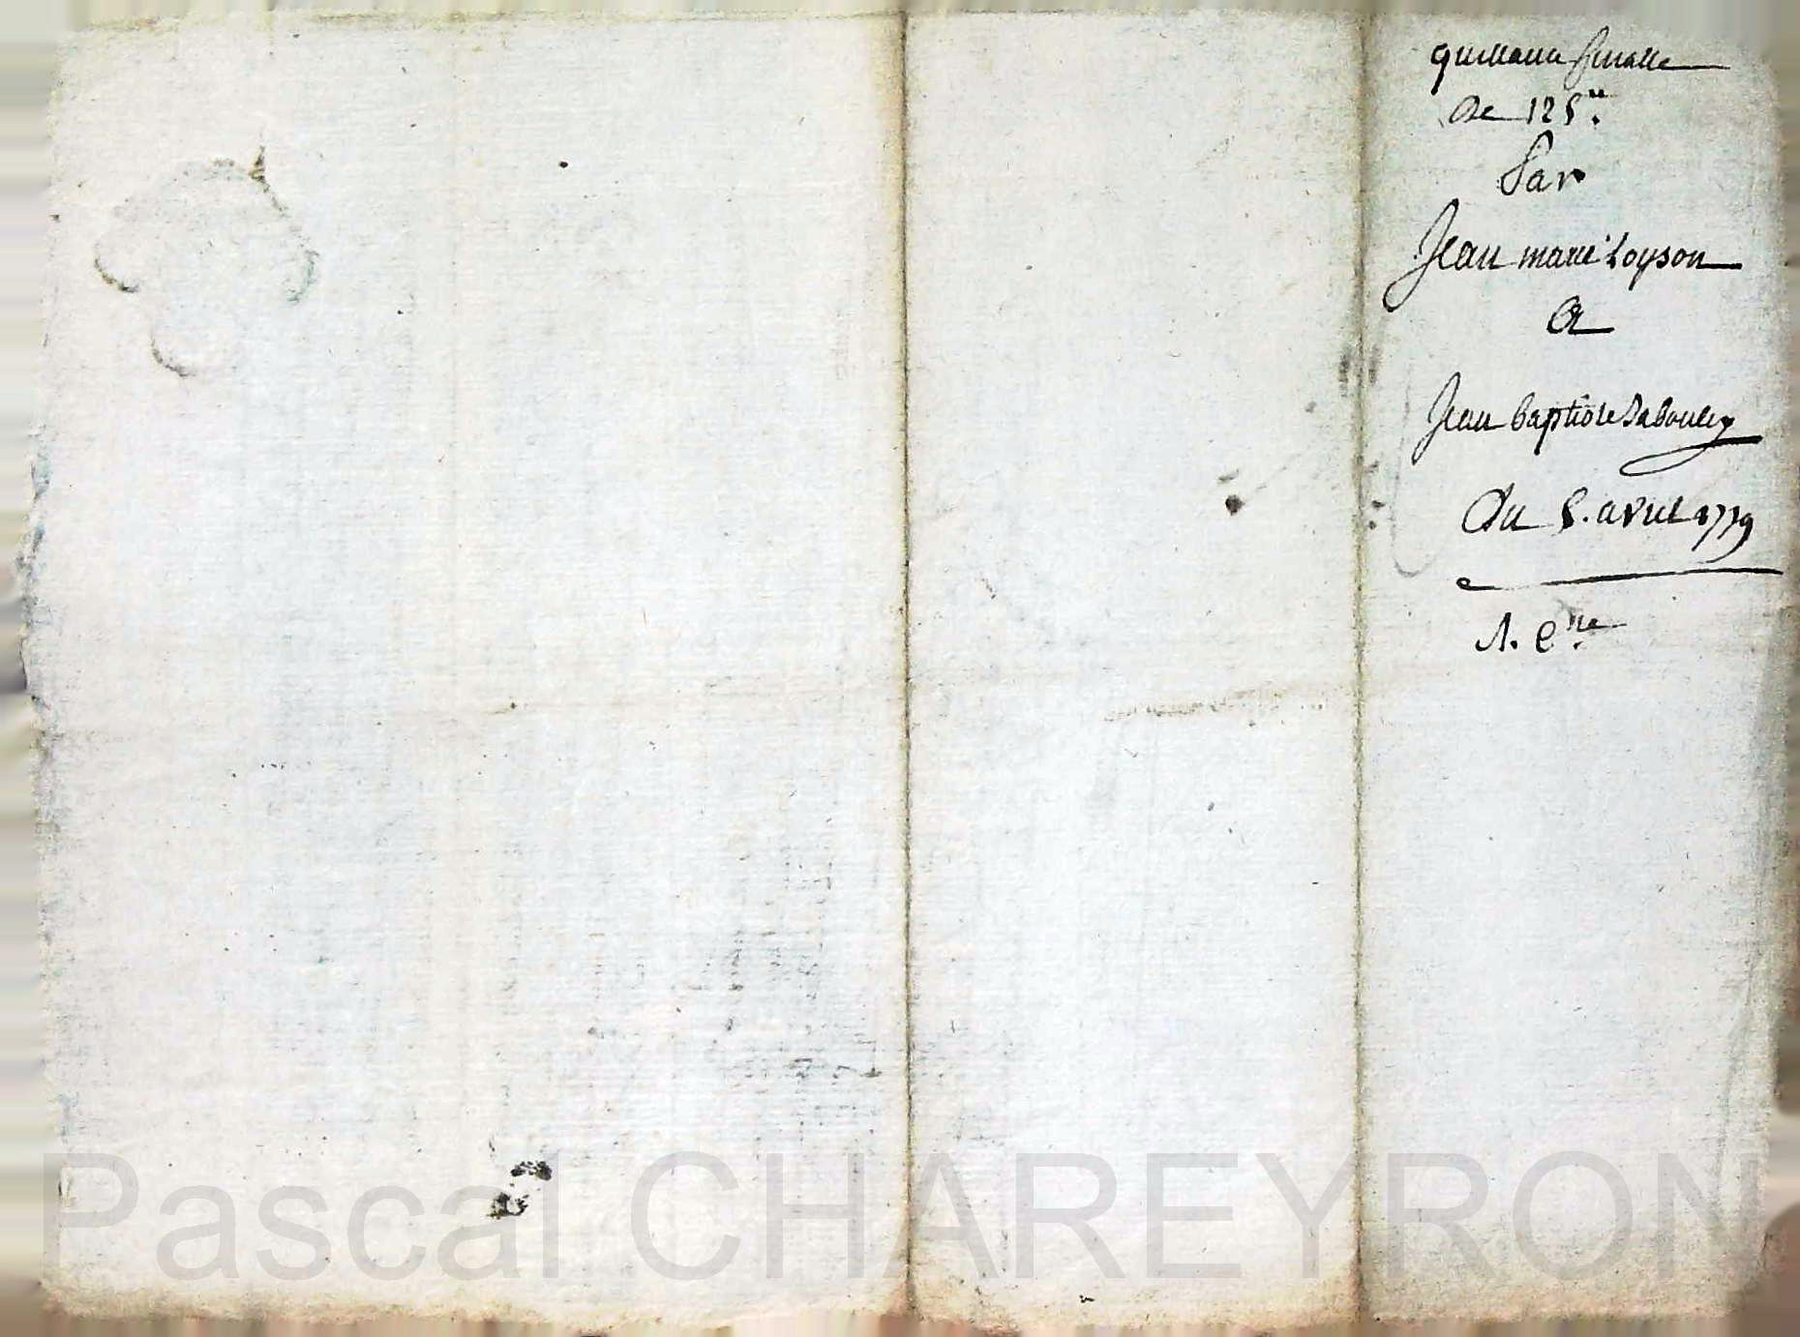 quittance finalle
de 125ᵗᵗ.
Par
Jean marie Loyson
A
Jean baptiste Sabouley
Du 5. avril 1779
1. eˣᵖˡᵉ.
Pascal CHAREYRON